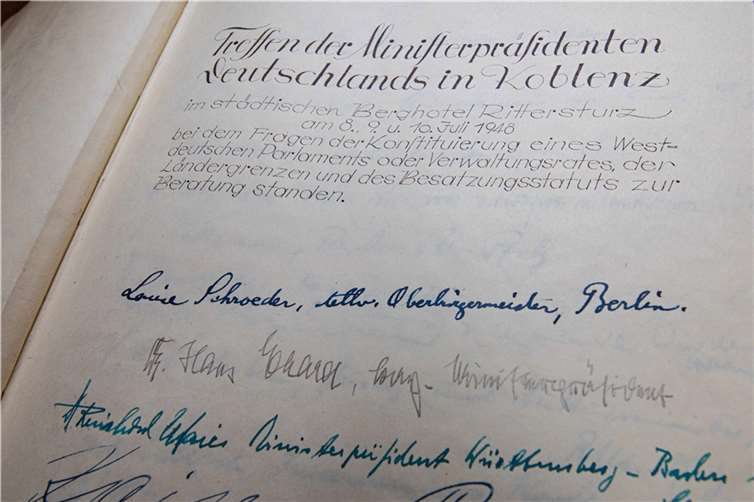 Treffen der Ministerpräsidenten
Deutschlands in Koblenz
im städtischen Berghotel Rittersturz
am 8., 9. u. 10. Juli 1948
bei dem Fragen der Konstituierung eines West-
deutschen Parlaments oder Verwaltungsrates, der
Ländergrenzen und des Besatzungsstatuts zur
Beratung standen.
Louise Schroeder, stellv. Oberbürgermeister, Berlin.
Hans Ehard, bay. Ministerpräsident
Reinhold Maier Ministerpräsident Württemberg-Baden